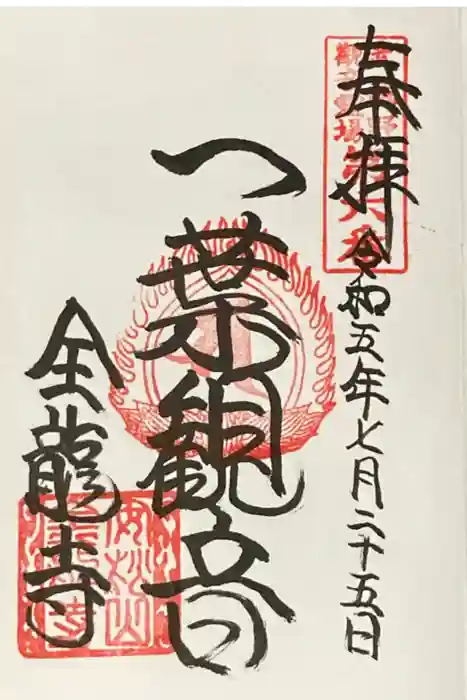 奉拝
令和五年七月二十五日
一葉観音
全龍寺